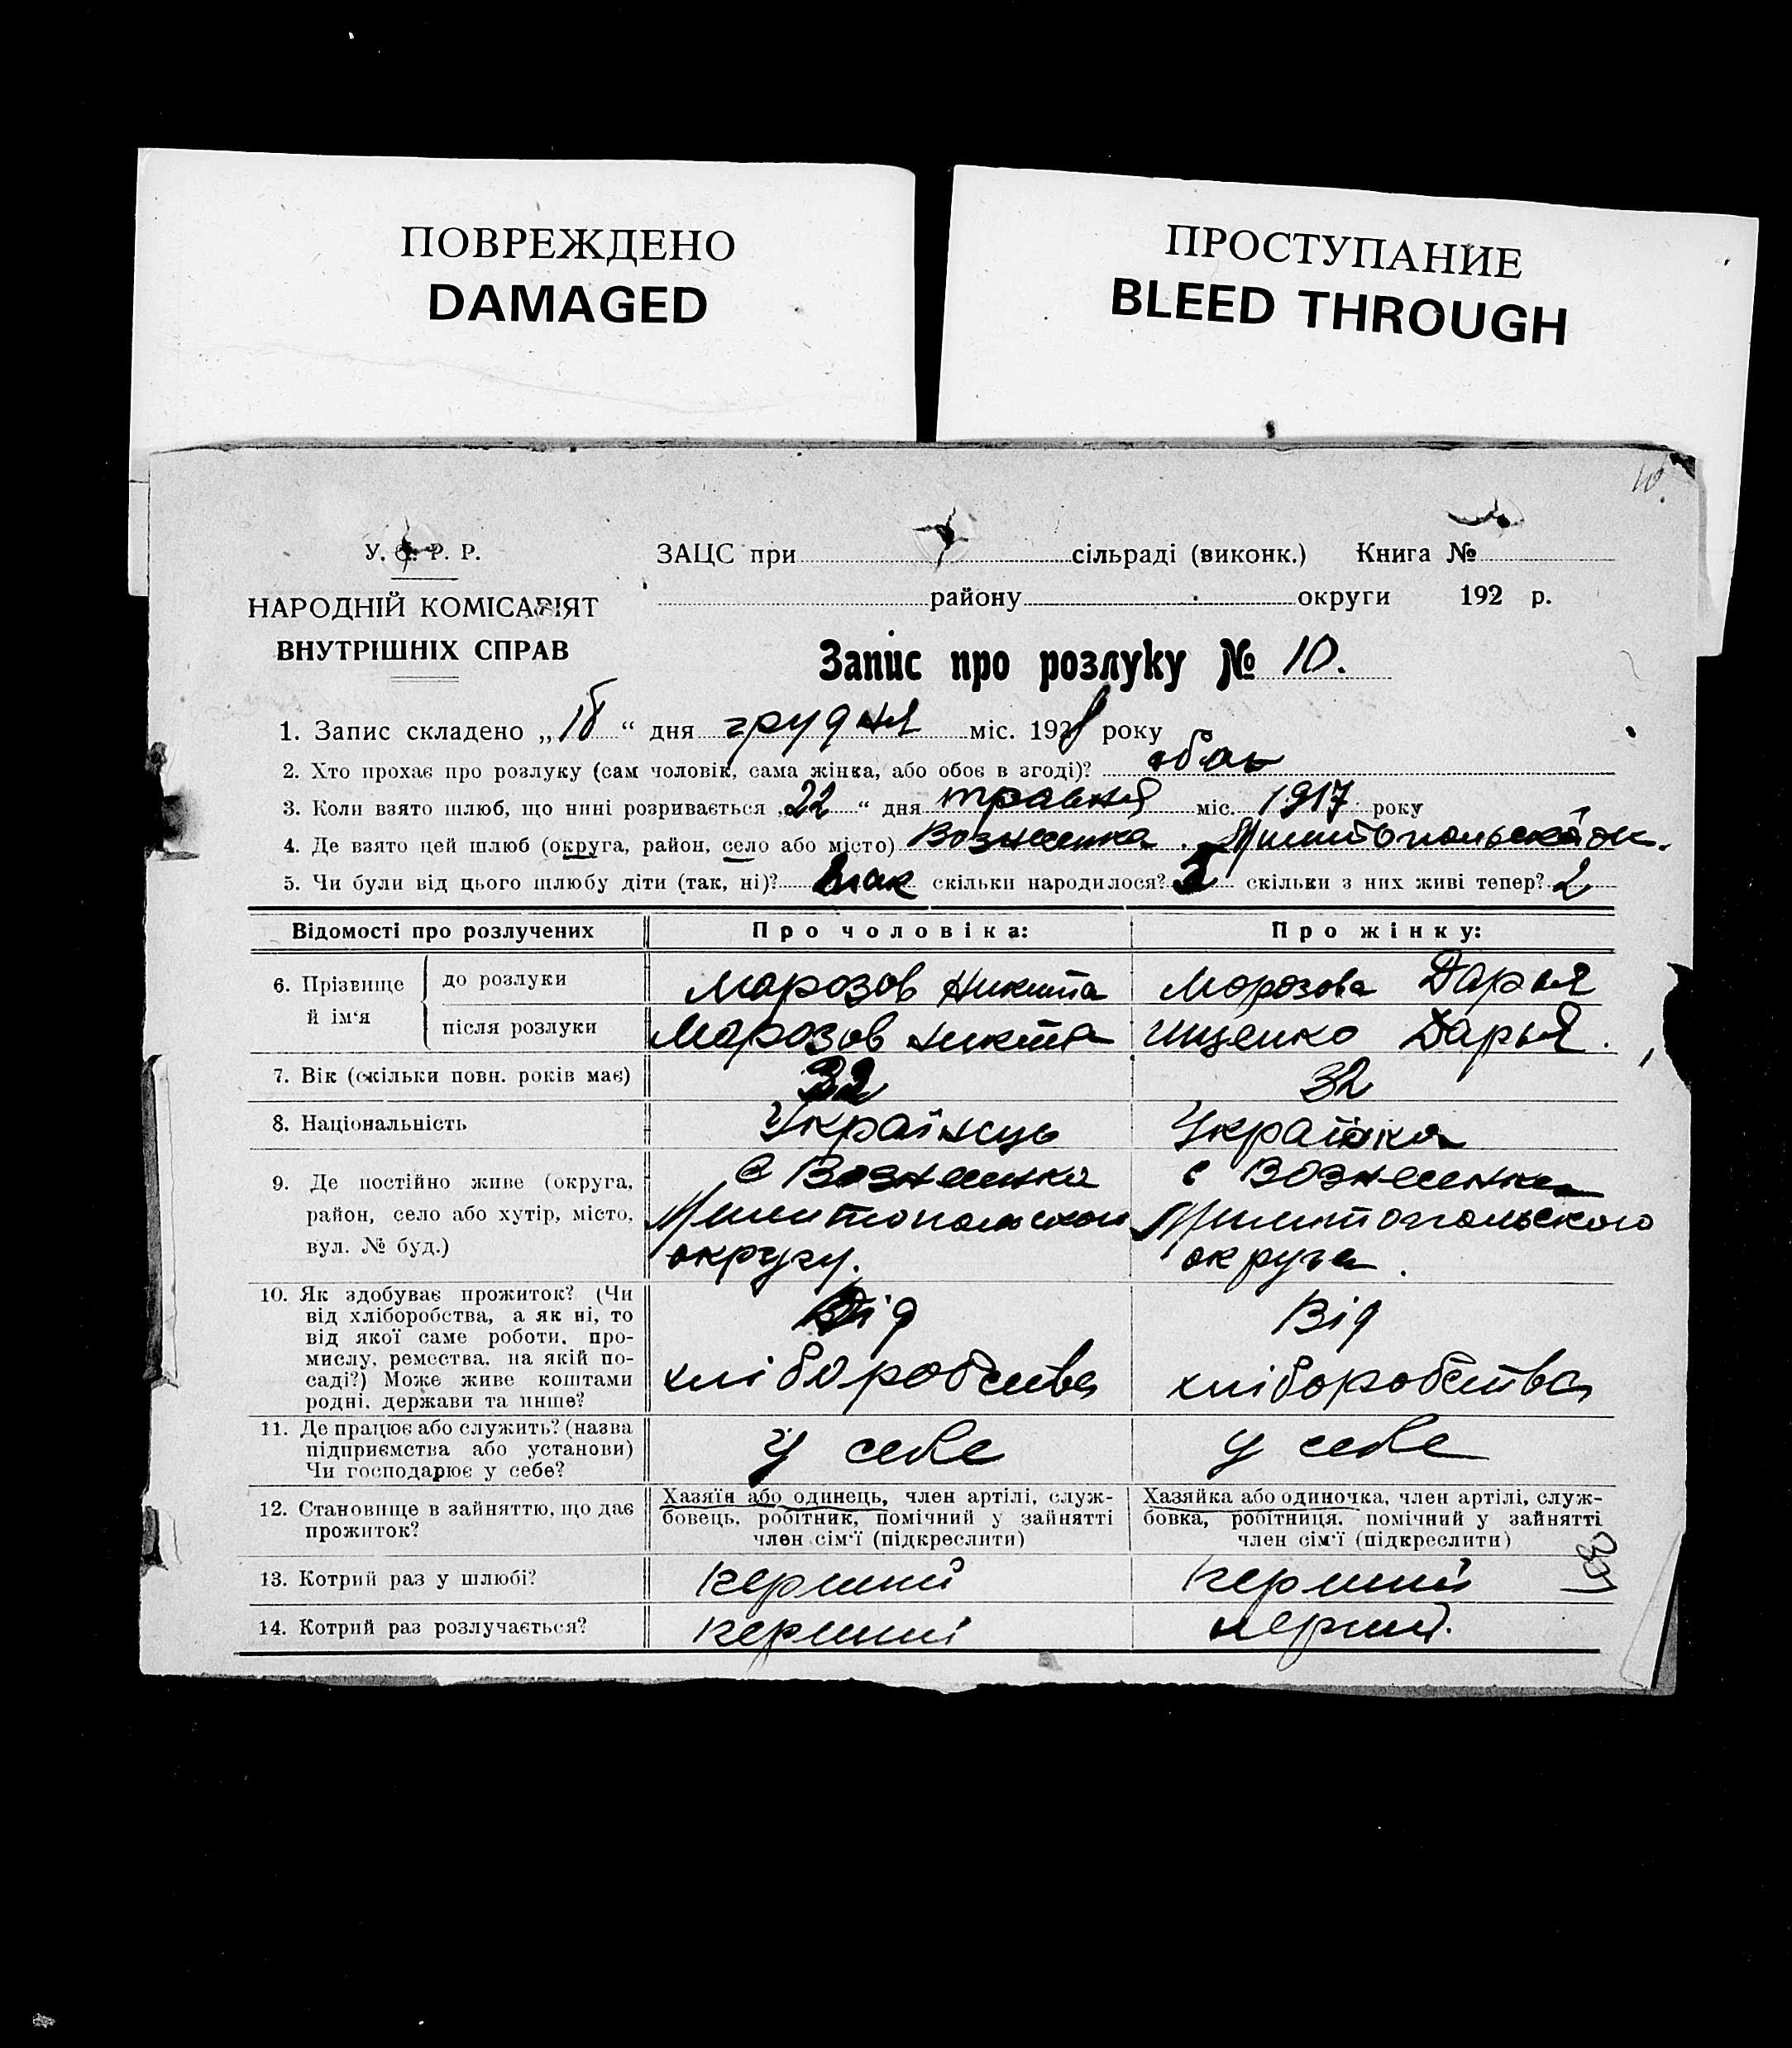 ПОВРЕЖДЕНО
DAMAGED
ПРОСТУПАНИЕ
BLEED THROUGH
10.
У. С. Р. Р.
НАРОДНІЙ КОМІСАРІЯТ
ВНУТРІШНІХ СПРАВ
ЗАЦС при сільраді (виконк.) Книга №
району округи 192 р.
Запис про розлуку № 10.
1. Запис складено „ “ дня грудня міс. 192 року
2. Хто прохає про розлуку (сам чоловік, сама жінка, або обоє в згоді)?
3. Коли взято шлюб, що нині розривається „22 “ дня травня міс. 1917 року
4. Де взято цей шлюб (округа, район, село або місто) Вознесенка.
5. Чи були від цього шлюбу діти (так, ні)? так скільки народилося? скільки з них живі тепер? 2
Відомості про розлучених
Про чоловіка:
Про жінку:
6. Прізвище й ім‘я
до розлуки
Морозов Никита
Морозова Дарья
після розлуки
Морозов Никита
Ищенко Дарья.
7. Вік (скільки повн. років має)
32
32
8. Національність
Українець
Українка
9. Де постійно живе (округа,
район, село або хутір, місто,
вул. № буд.)
с Вознесенка
округу.
с Вознесенка
округа.
10. Як здобуває прожиток? (Чи
від хліборобства, а як ні, то
від якої саме роботи, про-
мислу, ремества, на якій по-
саді?) Може живе коштами
родні, держави та инше?
Від
хліборобства
Від
хліборобства
11. Де працює або служить? (назва
підприємства або установи)
Чи господарює у себе?
У себе
У себе
12. Становище в зайняттю, що дає
прожиток?
Хазяїн або одинець, член артілі, служ-
бовець, робітник, помічний у зайнятті
член сім‘ї (підкреслити)
Хазяйка або одиночка, член артілі, служ-
бовка, робітниця, помічний у зайнятті
член сім‘ї (підкреслити)
13. Котрий раз у шлюбі?
первий
первий
14. Котрий раз розлучається?